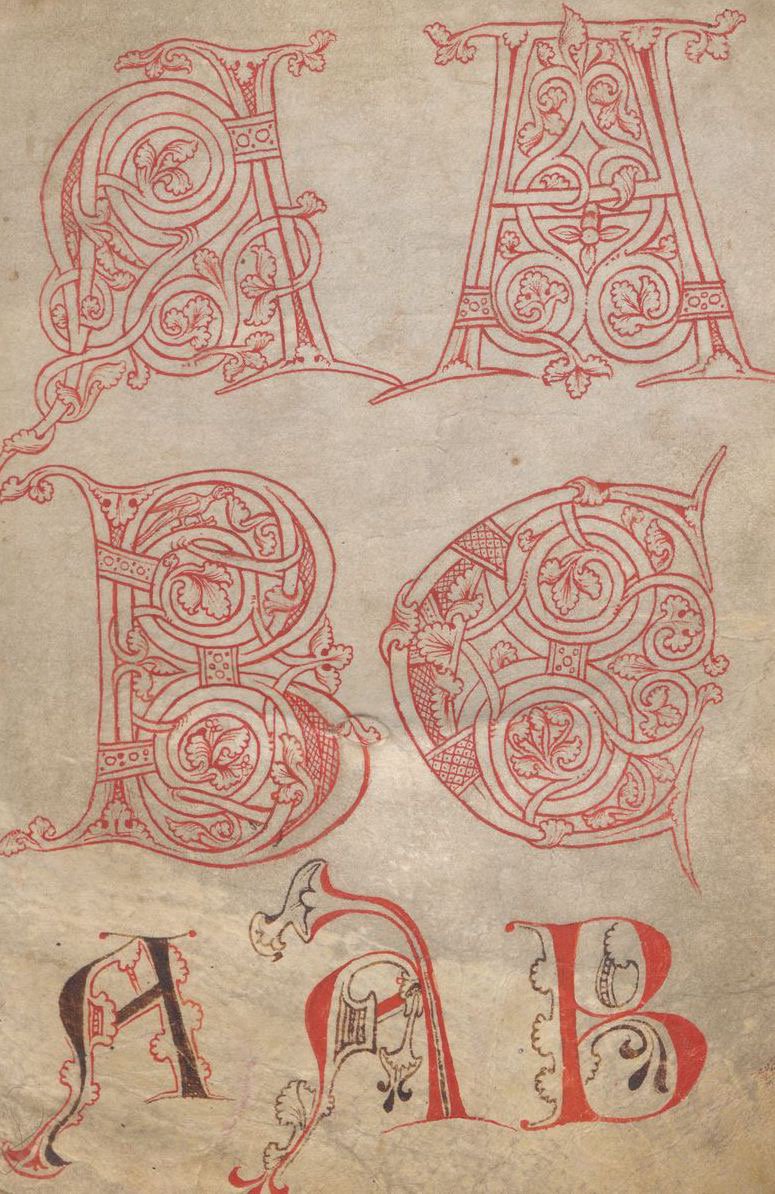 A A
B C
A A B